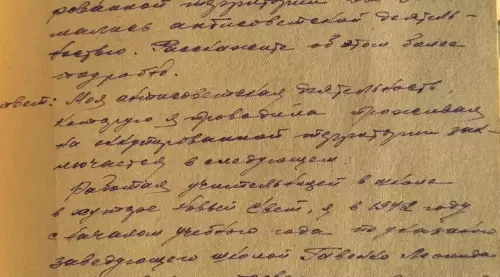 рованной территории
малась антисоветской деятель-
ностью. Расскажите об этом более
подробно.
Ответ: Моя антисоветская деятельность,
которую я проводила проживая
на оккупированной территории зак-
лючается в следующем:
Работая учительницей в школе
в хуторе Новый Свет, я в 1942 году
с началом учебного года по указанию
заведующего школой Гавенко Леонида